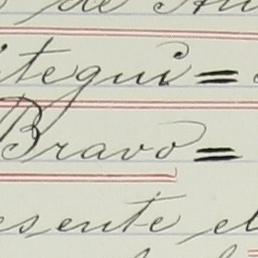 de
tegui =
Bravo =
esente el